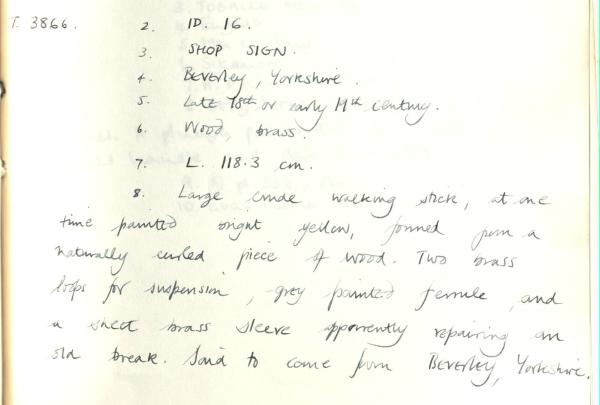 T. 3866. 2. ID. 16.
3. SHOP SIGN.
4. Beverley, Yorkshire.
5. Late 18th or early 19th century.
6. Wood, brass.
7. L. 118.3 cm.
8. Large crude walking stick, at one
time painted bright yellow, formed from a
naturally curled piece of wood. Two brass
loops for suspension, grey painted ferrule, and
a sheet brass sleeve apparently repairing an
old break. Said to come from Beverley, Yorkshire.